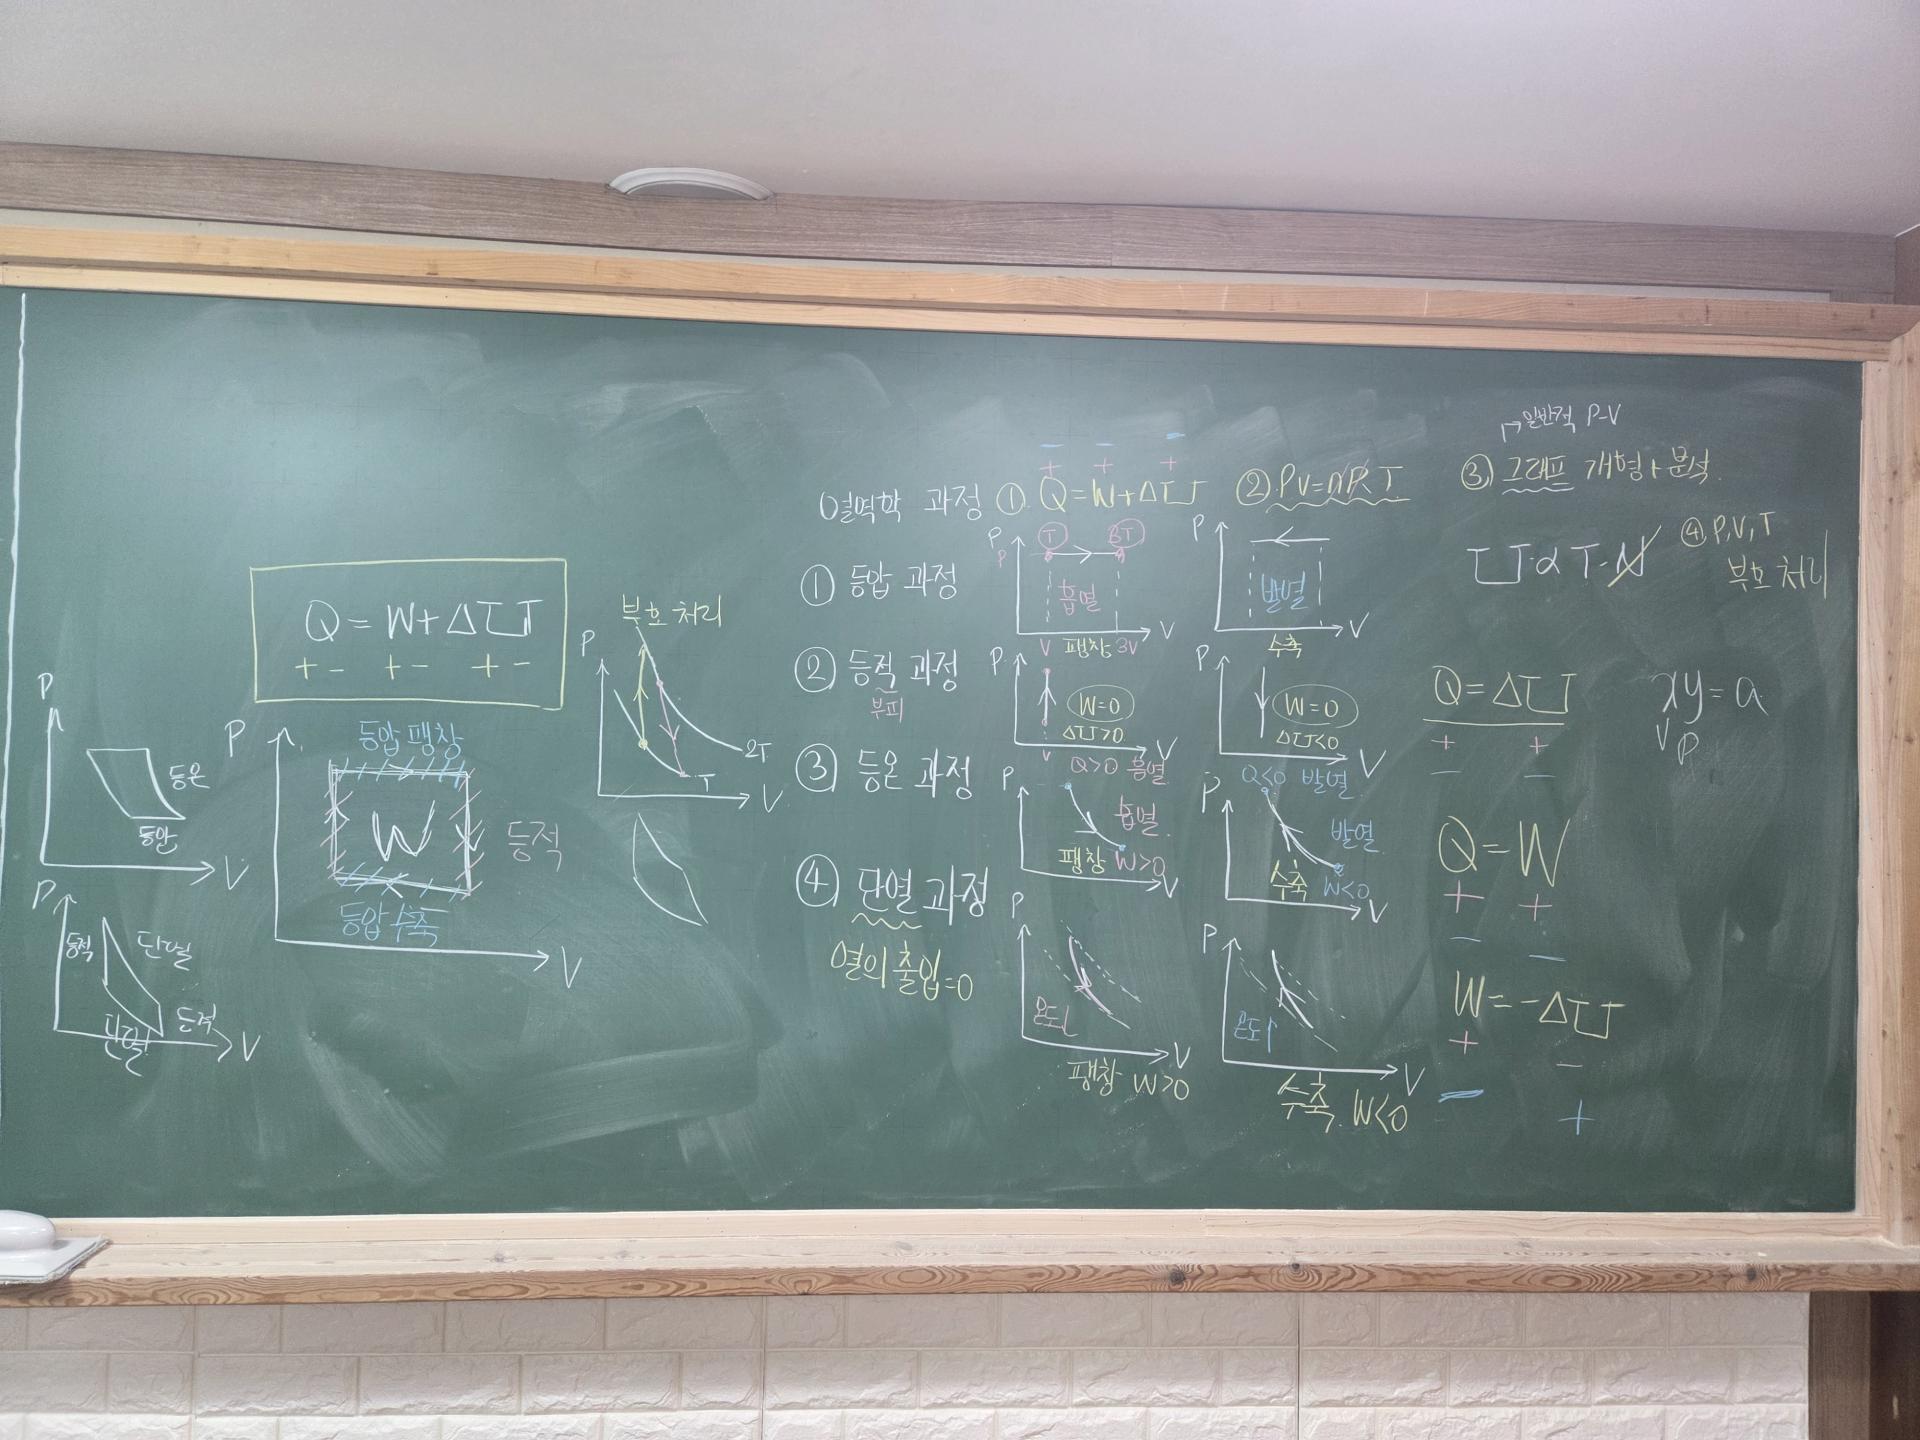 Q = W + ΔU
+ - + - + -
P
등온
등압
V
P
등적
단열
단열
등적
V
P
등압 팽창
W
등적
등압 수축
V
부호 처리
P
2T
T
V
열역학 과정
① Q = W + ΔU
- - -
+ + +
② PV = nRT
→ 일반적 P-V
③ 그래프 개형, 분석
U ∝ T·N
④ P, V, T
부호 처리
① 등압 과정
P
P
T
3T
흡열
V 팽창 3V
V
P
발열
수축
V
② 등적 과정
부피
P
W=0
ΔU>0
V
V
Q>0 흡열
P
W=0
ΔU<0
V
Q<0 발열
Q = ΔU
+ +
- -
xy = a
V P
③ 등온 과정
P
흡열
팽창 W>0
V
P
발열
수축 W<0
V
Q = W
+ +
- -
④ 단열 과정
열의 출입=0
P
온도↓
V
팽창 W>0
P
온도↑
V
수축 W<0
W = -ΔU
+ -
- +